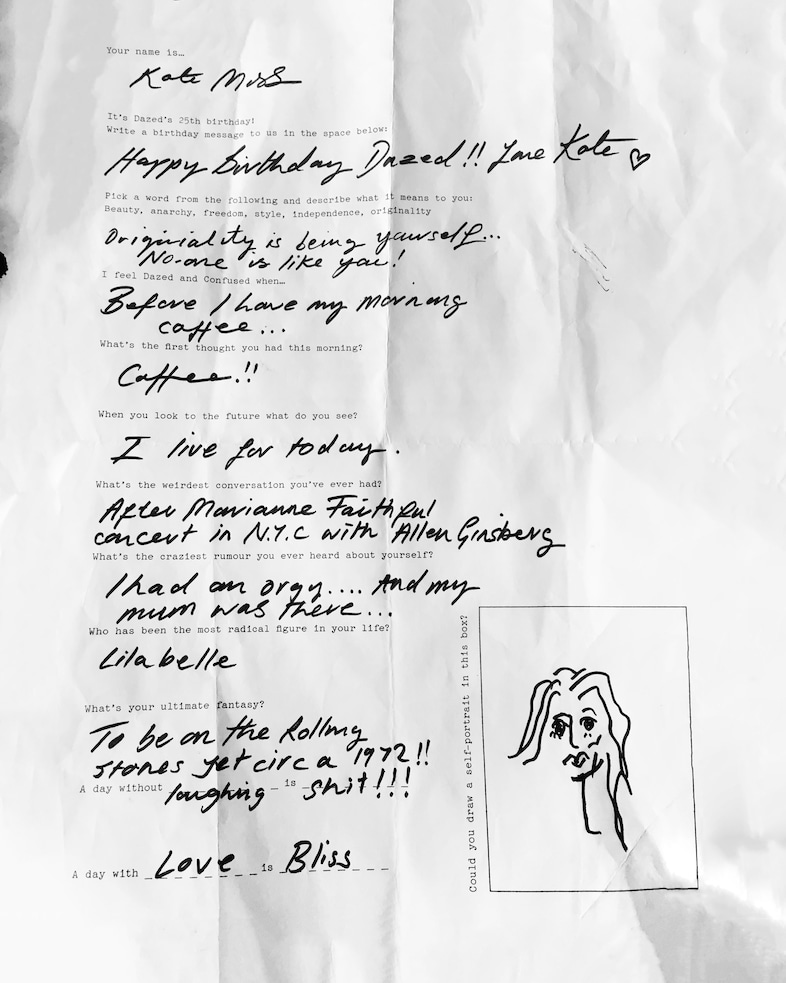 Your name is…
Kate Moss
It's Dazed's 25th birthday!
Write a birthday message to us in the space below:
Happy birthday Dazed!! Love Kate ♡
Pick a word from the following and describe what it means to you:
Beauty, anarchy, freedom, style, independence, originality
Originiality is being yourself...
No-one is like you!
I feel Dazed and Confused when…
Before I have my morning
coffee...
What's the first thought you had this morning?
Coffee!!
When you look to the future what do you see?
I live for today.
What's the weirdest conversation you've ever had?
After Marianne Faithful
concert in N.Y.C with Allen Ginsberg
What's the craziest rumour you ever heard about yourself?
I had an orgy.... And my
mum was there...
Who has been the most radical figure in your life?
Lilabelle
What's your ultimate fantasy?
To be on the Rolling
Stones jet circa 1972!!
A day without laughing is shit!!!
A day with Love is Bliss
Could you draw a self-portrait in this box?